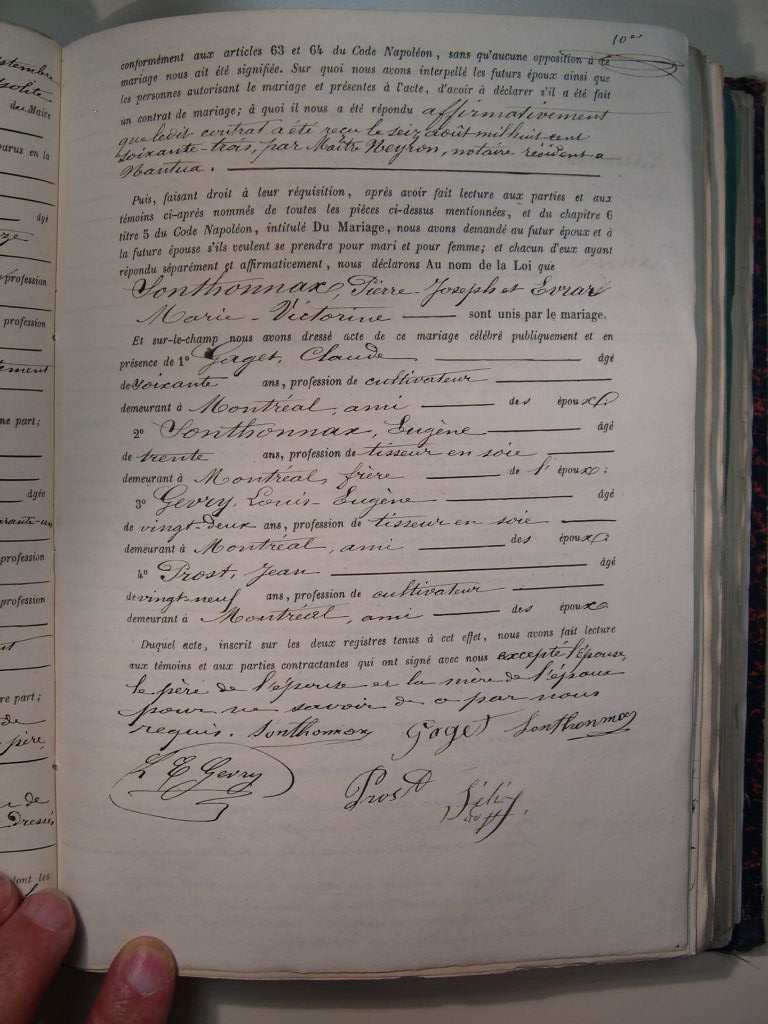 10e
conformément aux articles 63 et 64 du Code Napoléon, sans qu'aucune opposition à ce
mariage nous ait été signifiée. Sur quoi nous avons interpellé les futurs époux ainsi que
les personnes autorisant le mariage et présentes à l'acte, d'acoir à déclarer s'il a été fait
un contrat de mariage; à quoi il nous a été répondu affirmativement
que ledit contrat a été reçu le seize août mil huit cent
soixante-trois, par Maître Neyron, notaire résident a
Nantua.
Puis, faisant droit à leur réquisition, après avoir fait lecture aux parties et aux
témoins ci-après nommés de toutes les pièces ci-dessus mentionnées, et du chapitre 6
titre 5 du Code Napoléon, intitulé Du Mariage, nous avons demandé au futur époux et à
la future épouse s'ils veulent se prendre pour mari et pour femme; et chacun d'eux ayant
répondu séparément et affirmativement, nous déclarons Au nom de la Loi que
Sonthonnax, Pierre-Joseph et Evrar
Marie-Victorine sont unis par le mariage.
Et sur-le-champ nous avons dressé acte de ce mariage célébré publiquement et en
présence de 1º Gaget, Claude âgé
de soixante ans, profession de cultivateur
demeurant à Montréal, ami des époux.
2º Sonthonnax, Eugène âgé
de trente ans, profession de tisseur en soie
demeurant à Montréal, frère de l'époux;
3º Gevry, Louis-Eugène âgé
de vingt-deux ans, profession de tisseur en soie
demeurant à Montréal, ami des époux
4º Prost, Jean âgé
de vingt-neuf ans, profession de cultivateur
demeurant à Montréal, ami des époux
Duquel acte, inscrit sur les deux registres tenus à cet effet, nous avons fait lecture
aux témoins et aux parties contractantes qui ont signé avec nous excepté l'épouse,
le père de l'épouse et la mère de l'époux
pour ne savoir de ce par nous
requis. Sonthonnax Gaget Sonthonnax
L E Gevry
Prost